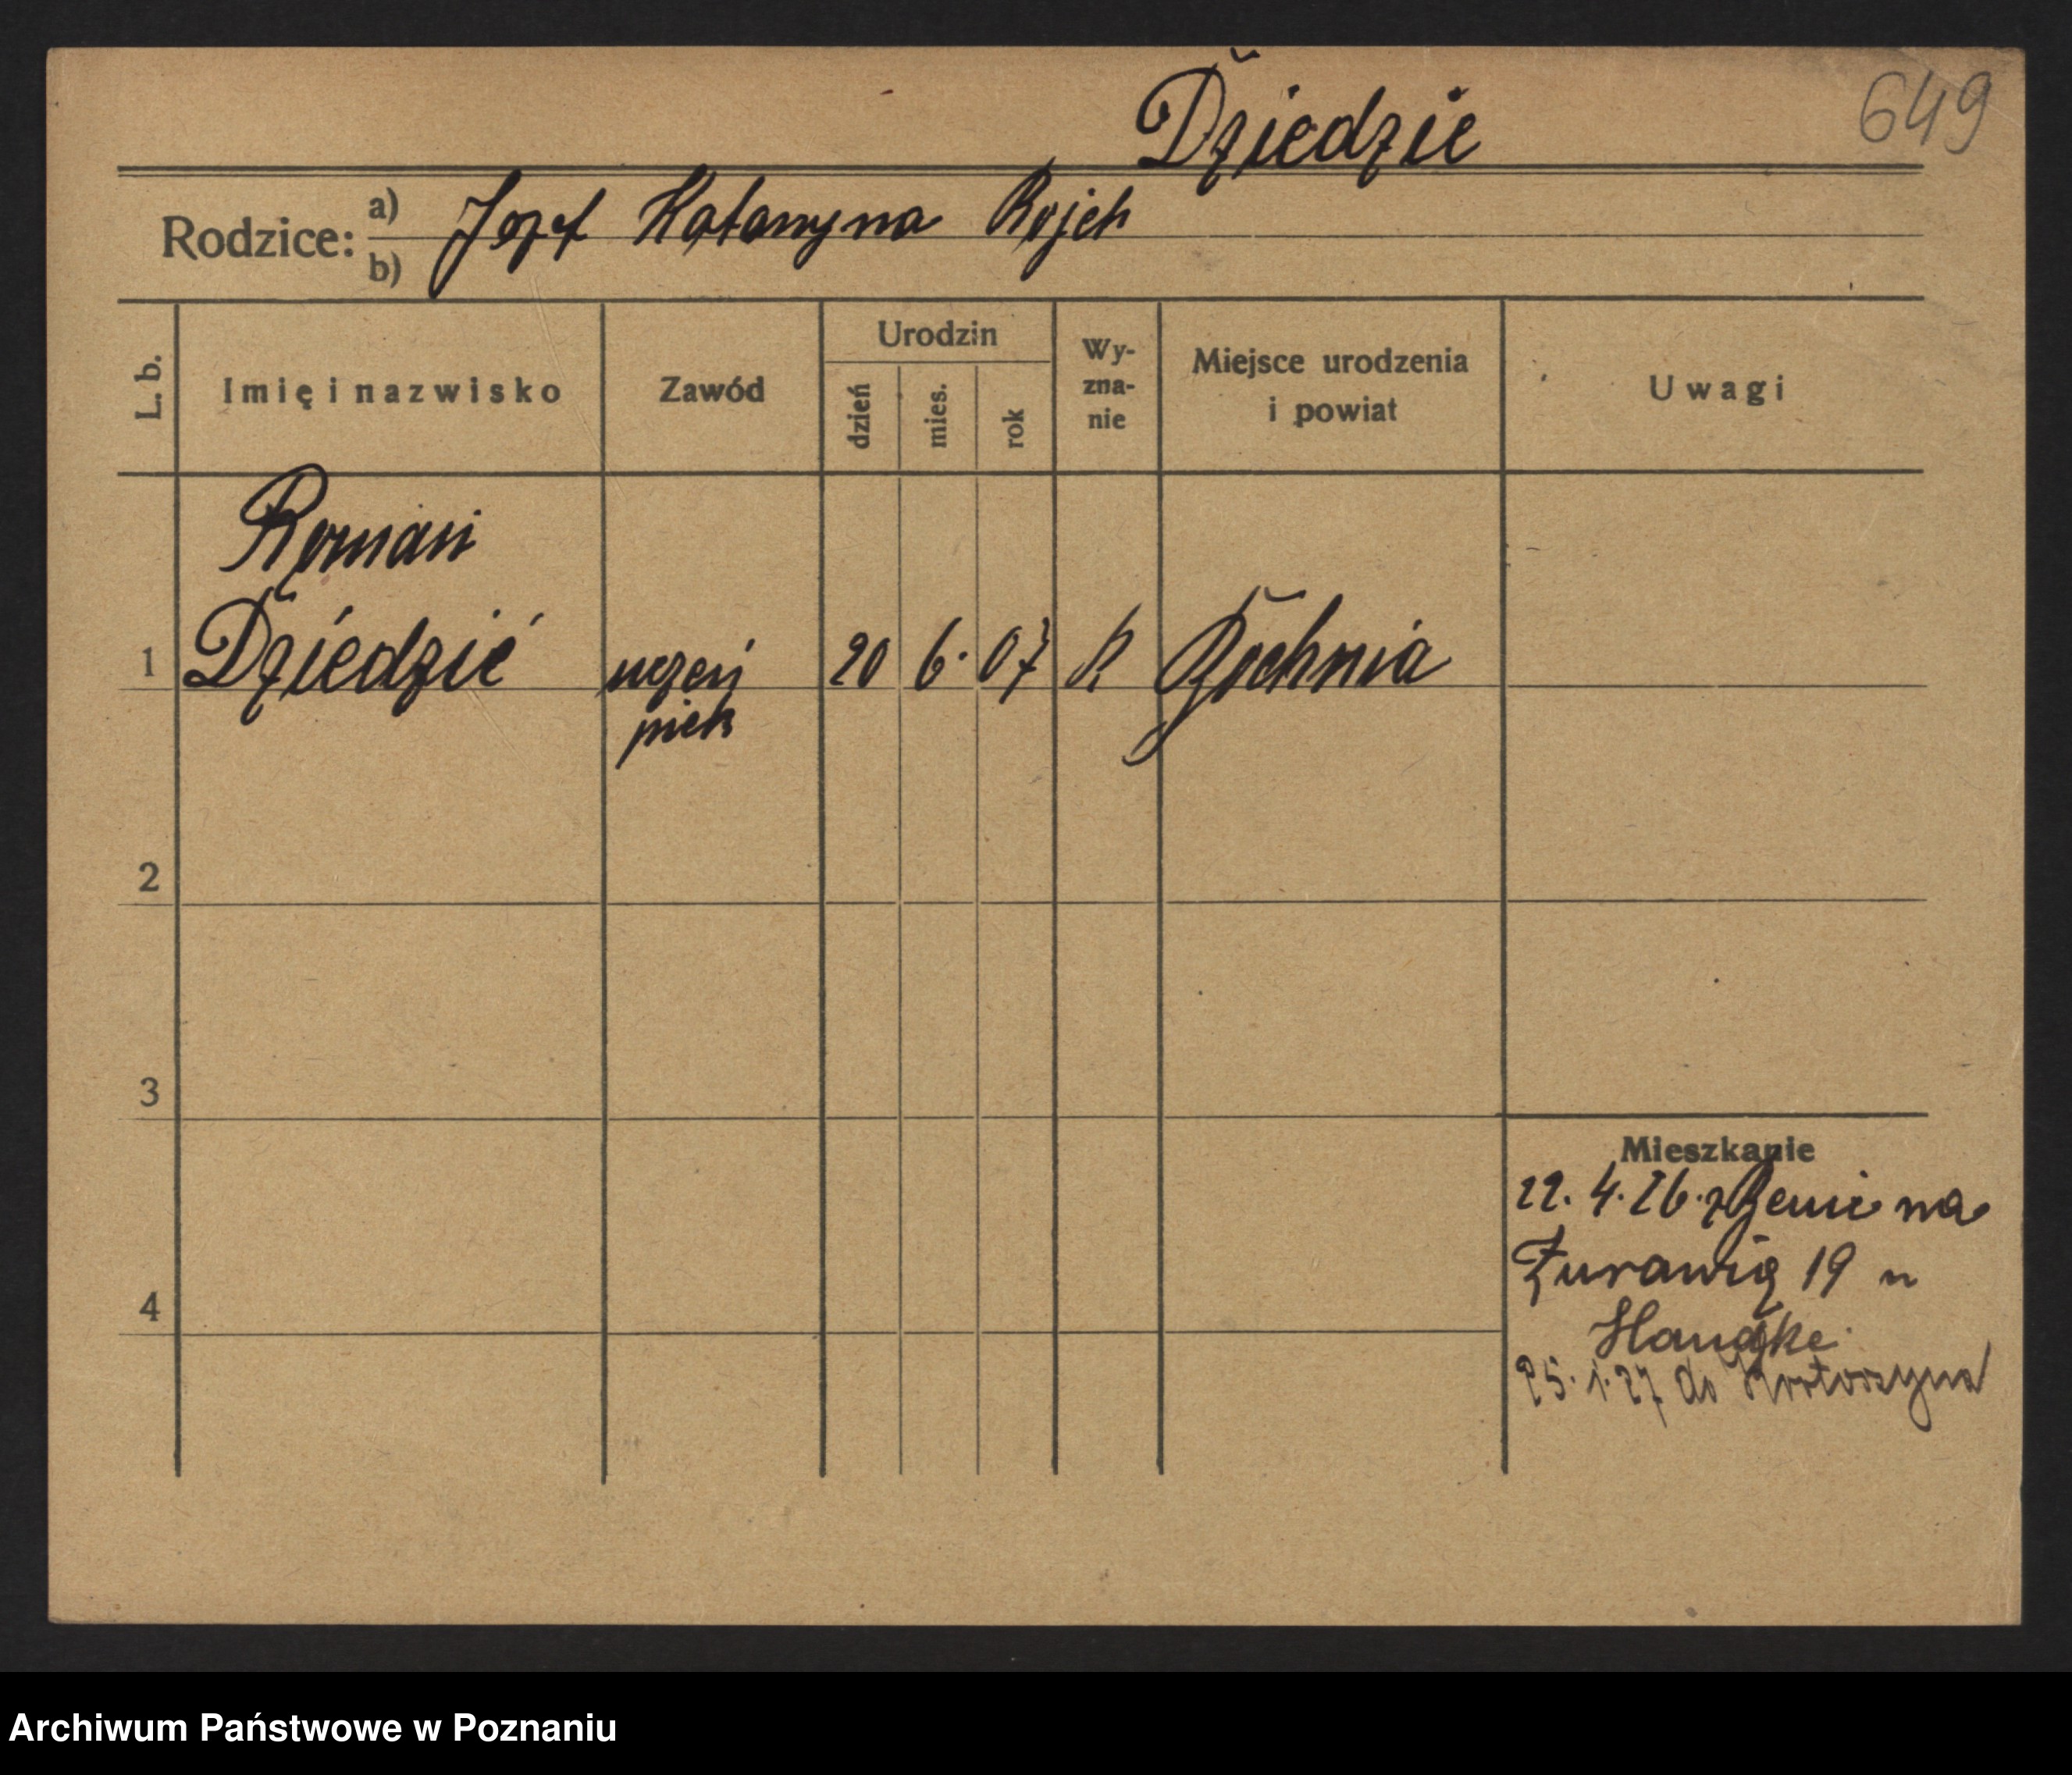 Dziedzic
649
Rodzice: a) b) Jozef Katarzyna Bojek
L. b.
Imię i nazwisko
Zawód
Urodzin
dzień
mies.
rok
Wy-
zna-
nie
Miejsce urodzenia
i powiat
Uwagi
Roman
1 Dziedzić uczeń 20 6. 07 R Bochnia
piek
2
3
Mieszkanie
22. 4. 26. z na
Żurawią 19 u
4
25. 1. 27 do Krotoszyna
Archiwum Państwowe w Poznaniu